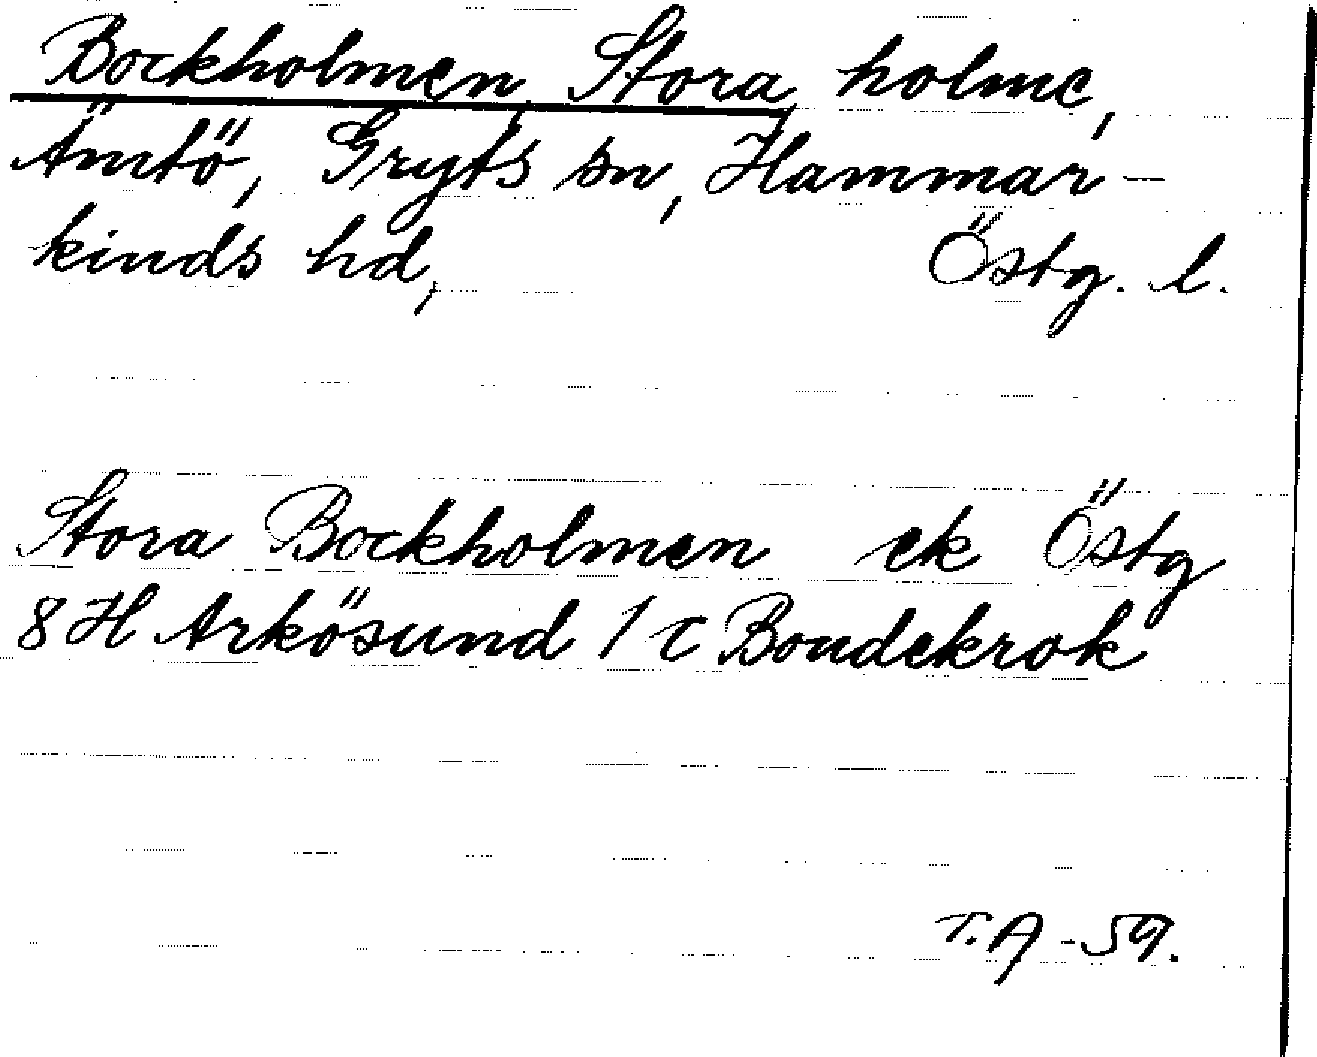 Bockholmen, Stora, holme,
Ämtö, Gryts sn, Hammar-
kinds hd, Östg. l.
Stora Bockholmen ek Östg
8 H Arkösund 1 c Bondekrok
T. A -59.